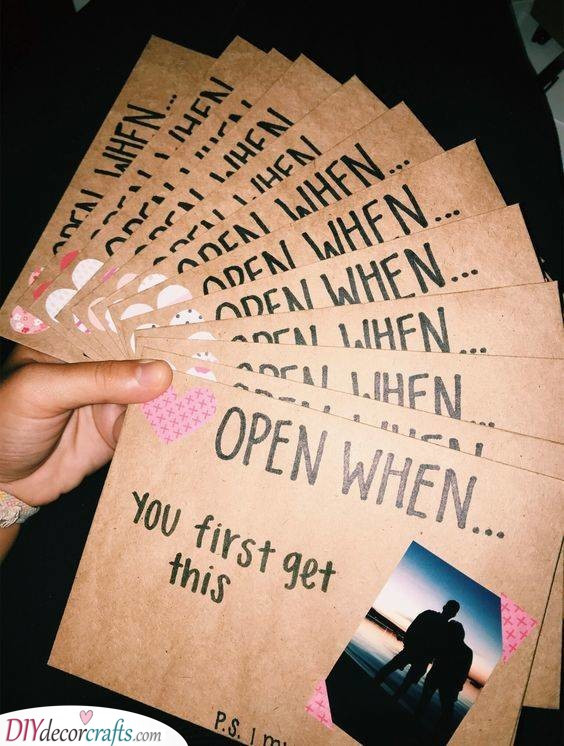 OPEN WHEN...
OPEN WHEN
OPEN WHEN
OPEN WHEN
OPEN WHEN
OPEN WHEN...
OPEN WHEN...
OPEN WHEN...
OPEN WHEN...
OPEN WHEN
OPEN WHEN...
YOU first get
this
P.S. I
DIYdecorcrafts.com